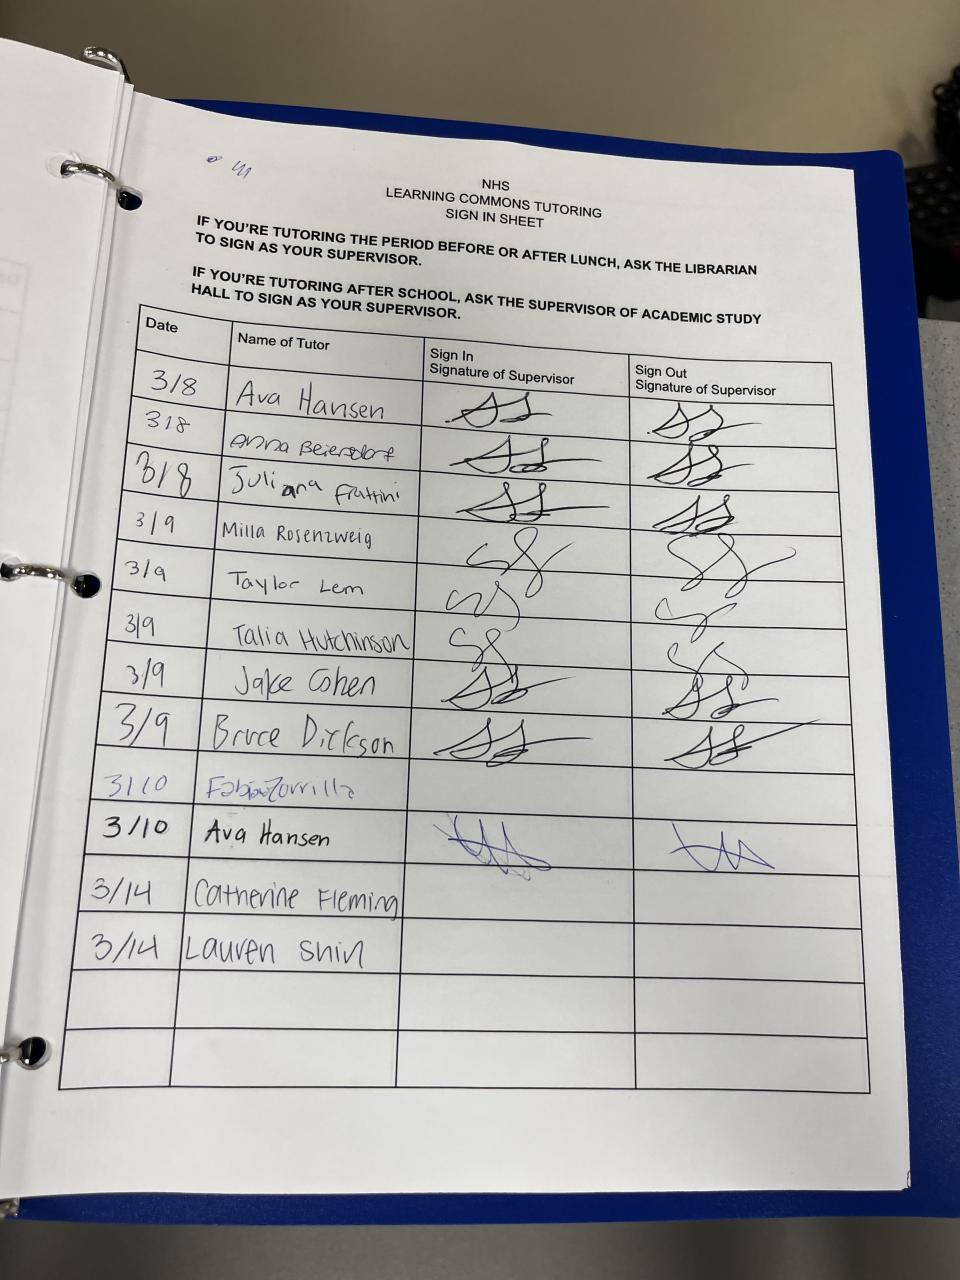 NHS
LEARNING COMMONS TUTORING
SIGN IN SHEET
IF YOU'RE TUTORING THE PERIOD BEFORE OR AFTER LUNCH, ASK THE LIBRARIAN
TO SIGN AS YOUR SUPERVISOR.
IF YOU'RE TUTORING AFTER SCHOOL, ASK THE SUPERVISOR OF ACADEMIC STUDY
HALL TO SIGN AS YOUR SUPERVISOR.
Date Name of Tutor Sign In Signature of Supervisor Sign Out Signature of Supervisor
3/8 Ava Hansen
3/8 Anna Beiersdorf
3/8 Juliana Frattini
3/9 Milla Rosenzweig
3/9 Taylor Lem
3/9 Talia Hutchinson
3/9 Jake Cohen
3/9 Bruce Dickson
3/10 Zorrilla
3/10 Ava Hansen
3/14 Catherine Fleming
3/14 Lauren Shin